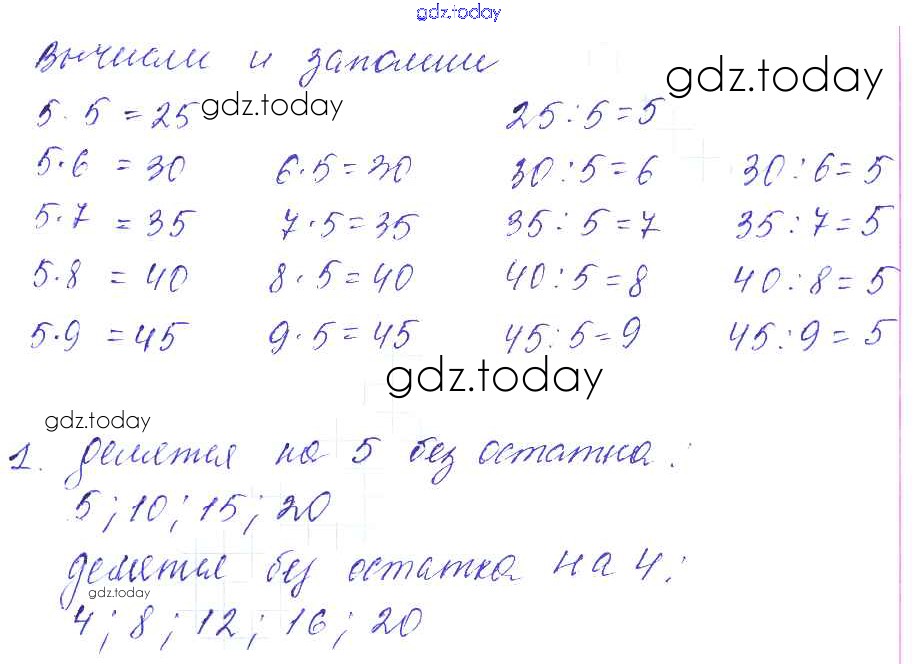 gdz.today
Вычисли и запомни
gdz.today
5·5=25 gdz.today 25:5=5
5·6=30 6·5=30 30:5=6 30:6=5
5·7=35 7·5=35 35:5=7 35:7=5
5·8=40 8·5=40 40:5=8 40:8=5
5·9=45 9·5=45 45:5=9 45:9=5
gdz.today
gdz.today
1. делятся на 5 без остатка:
5; 10; 15; 20
делятся без остатка на 4:
gdz.today
4; 8; 12; 16; 20